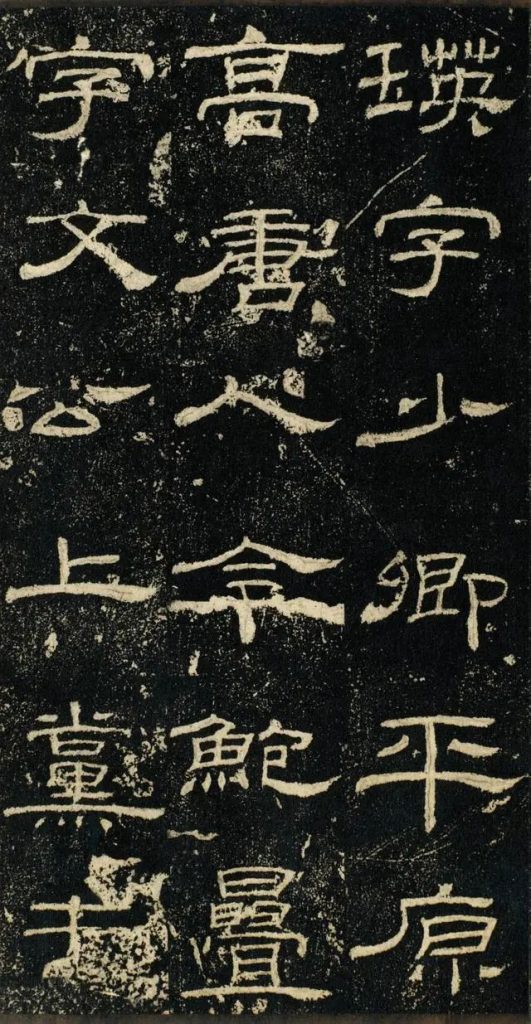 瑛字少卿平原
高唐人令鮑疊
字文公上黨